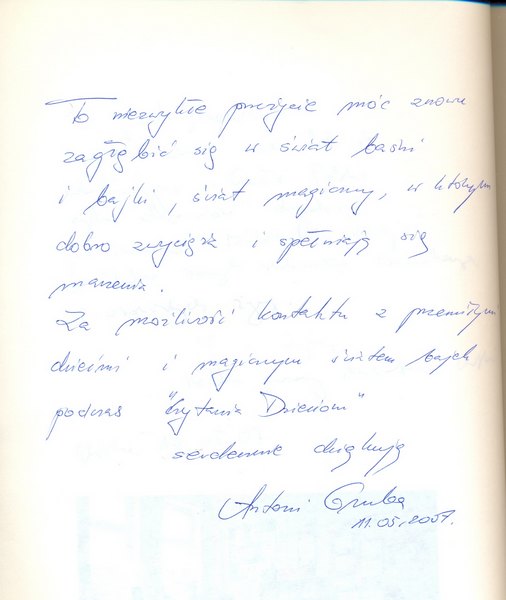 To niezwykłe przeżycie móc znowu
zagłębić się w świat baśni
i bajki, świat magiczny, w którym
dobro zwycięża i spełniają się
marzenia.
Za możliwość kontaktu z przemiłymi
dziećmi i magicznym światem bajek
podczas "Czytania Dzieciom"
serdecznie dziękuję
Antoni
11.05.2007.